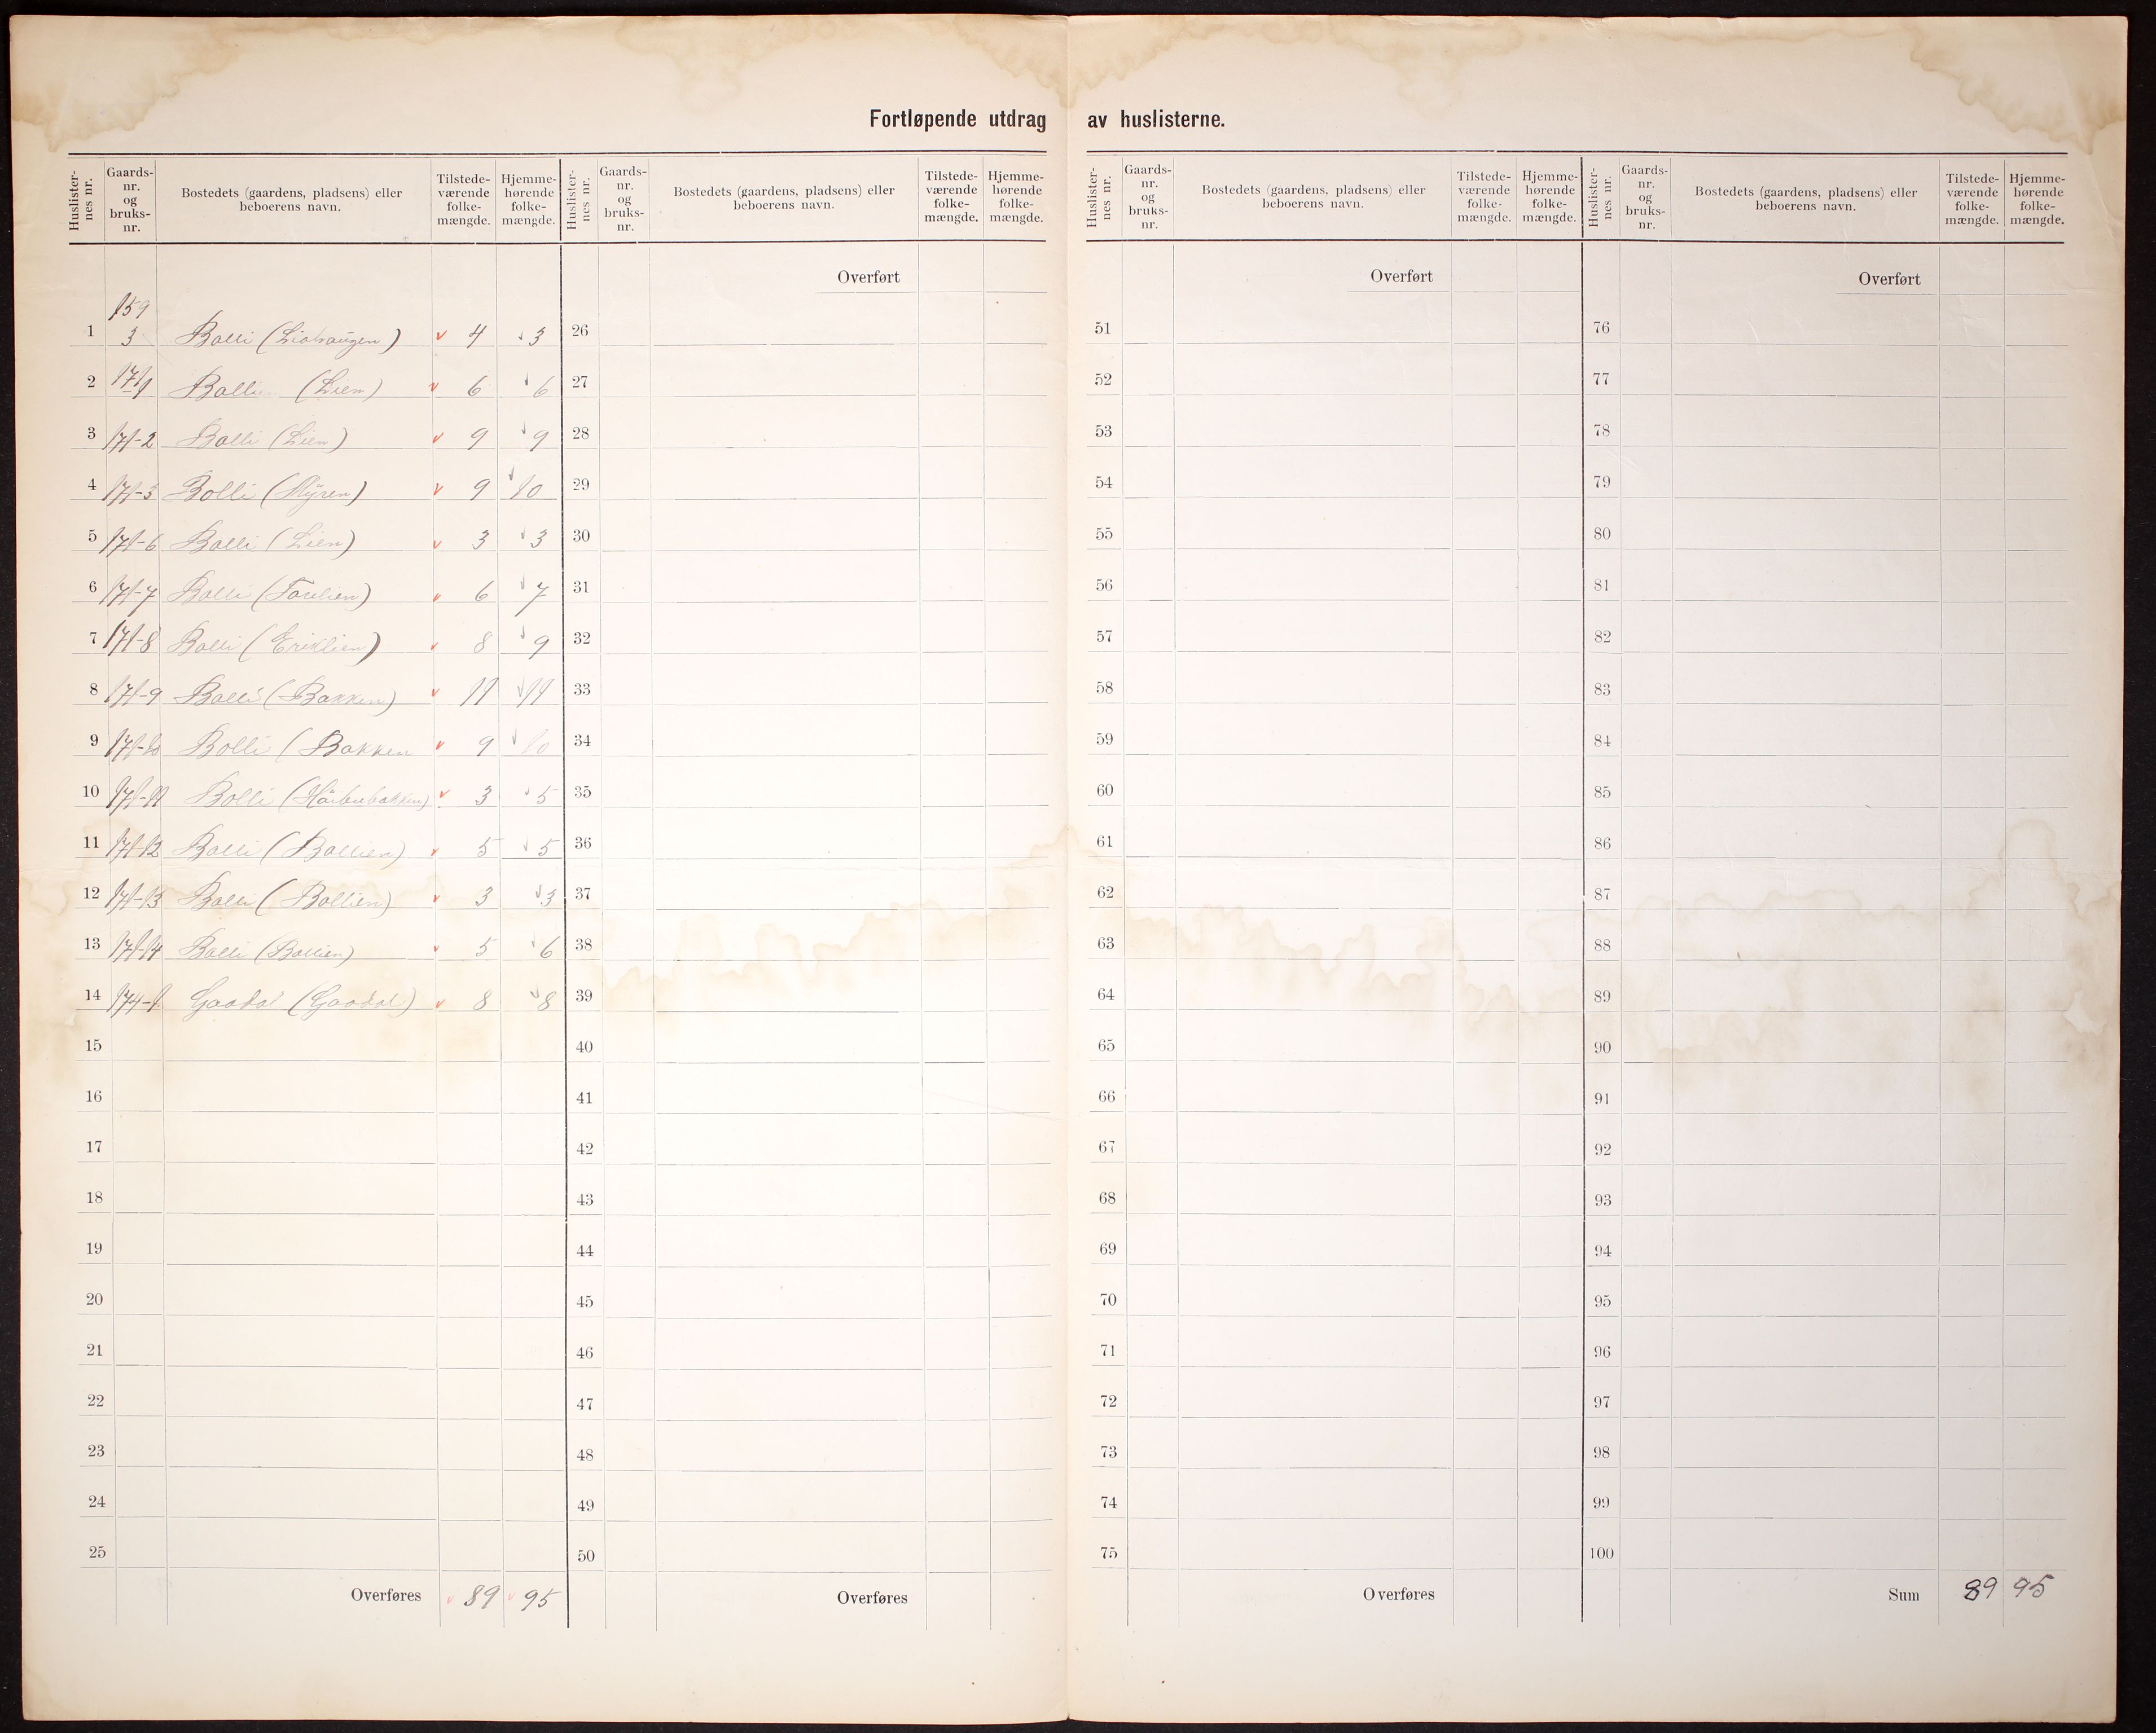 Fortløpende utdrag av huslisterne.
Huslister-nes nr. Gaards-nr. og bruks-nr. Bostedets (gaardens, pladsens) eller beboerens navn. Tilstede-værende folke-mængde. Hjemme-hørende folke-mængde.
159
1 3 Bolli 4 3
2 171/1 Bolli (Lien) 6 6
3 171-2 Bolli (Lien) 9 9
4 171-3 Bolli (Myren) 9 10
5 171-6 Bolli (Lien) 3 3
6 171-7 Bolli 6 7
7 171-8 Bolli (Eriklien) 8 9
8 171-9 Bolli (Bakken) 11 11
9 171-10 Bolli (Bakken 9 10
10 171-11 Bolli 3 5
11 171-12 Bolli (Bollien) 5 5
12 171-13 Bolli (Bollien) 3 3
13 171-14 Bolli (Bollien) 5 6
14 174-1 Gaadal (Gaadal) 8 8
15
16
17
18
19
20
21
22
23
24
25
Overføres 89 95
Huslister-nes nr. Gaards-nr. og bruks-nr. Bostedets (gaardens, pladsens) eller beboerens navn. Tilstede-værende folke-mængde. Hjemme-hørende folke-mængde.
Overført
26
27
28
29
30
31
32
33
34
35
36
37
38
39
40
41
42
43
44
45
46
47
48
49
50
Overføres
Huslister-nes nr. Gaards-nr. og bruks-nr. Bostedets (gaardens, pladsens) eller beboerens navn. Tilstede-værende folke-mængde. Hjemme-hørende folke-mængde.
Overført
51
52
53
54
55
56
57
58
59
60
61
62
63
64
65
66
67
68
69
70
71
72
73
74
75
Overføres
Huslister-nes nr. Gaards-nr. og bruks-nr. Bostedets (gaardens, pladsens) eller beboerens navn. Tilstede-værende folke-mængde. Hjemme-hørende folke-mængde.
Overført
76
77
78
79
80
81
82
83
84
85
86
87
88
89
90
91
92
93
94
95
96
97
98
99
100
Sum 89 95